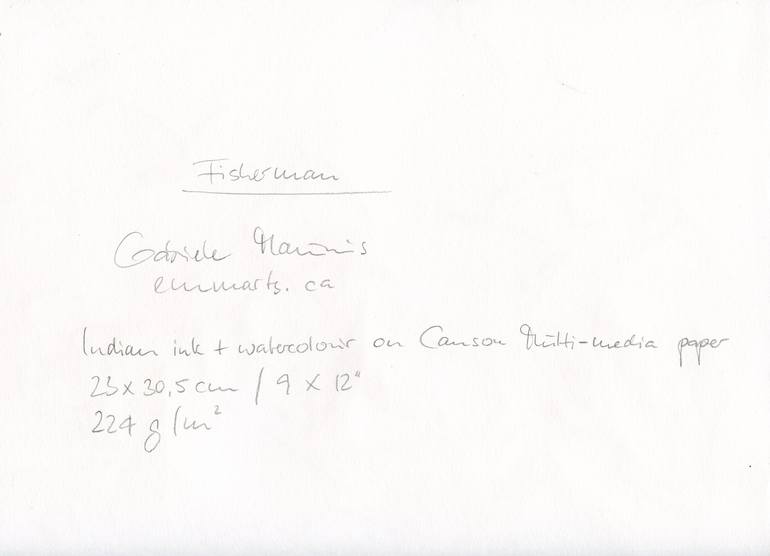 Fisherman
Gabriele
emmarts.ca
Indian ink + watercolour on Canson Multi-media paper
23 x 30,5 cm / 9 x 12"
224 g/m²